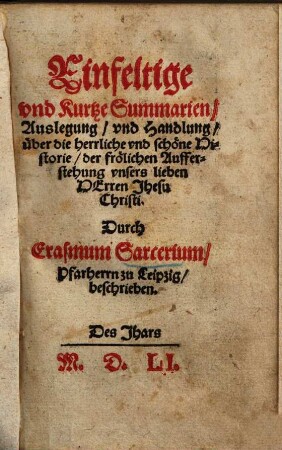 Einfeltige
vnd Kurtze Summarien/
Auslegung / vnd Handlung/
über die herrliche vnd schöne Hi-
storie / der frölichen Auffer-
stehung vnsers lieben
HErren Jhesu
Christi.
Durch
Erasmum Sarcerium/
Pfarherrn zu Leipzig/
beschrieben.
Des Jhars
M. D. LI.